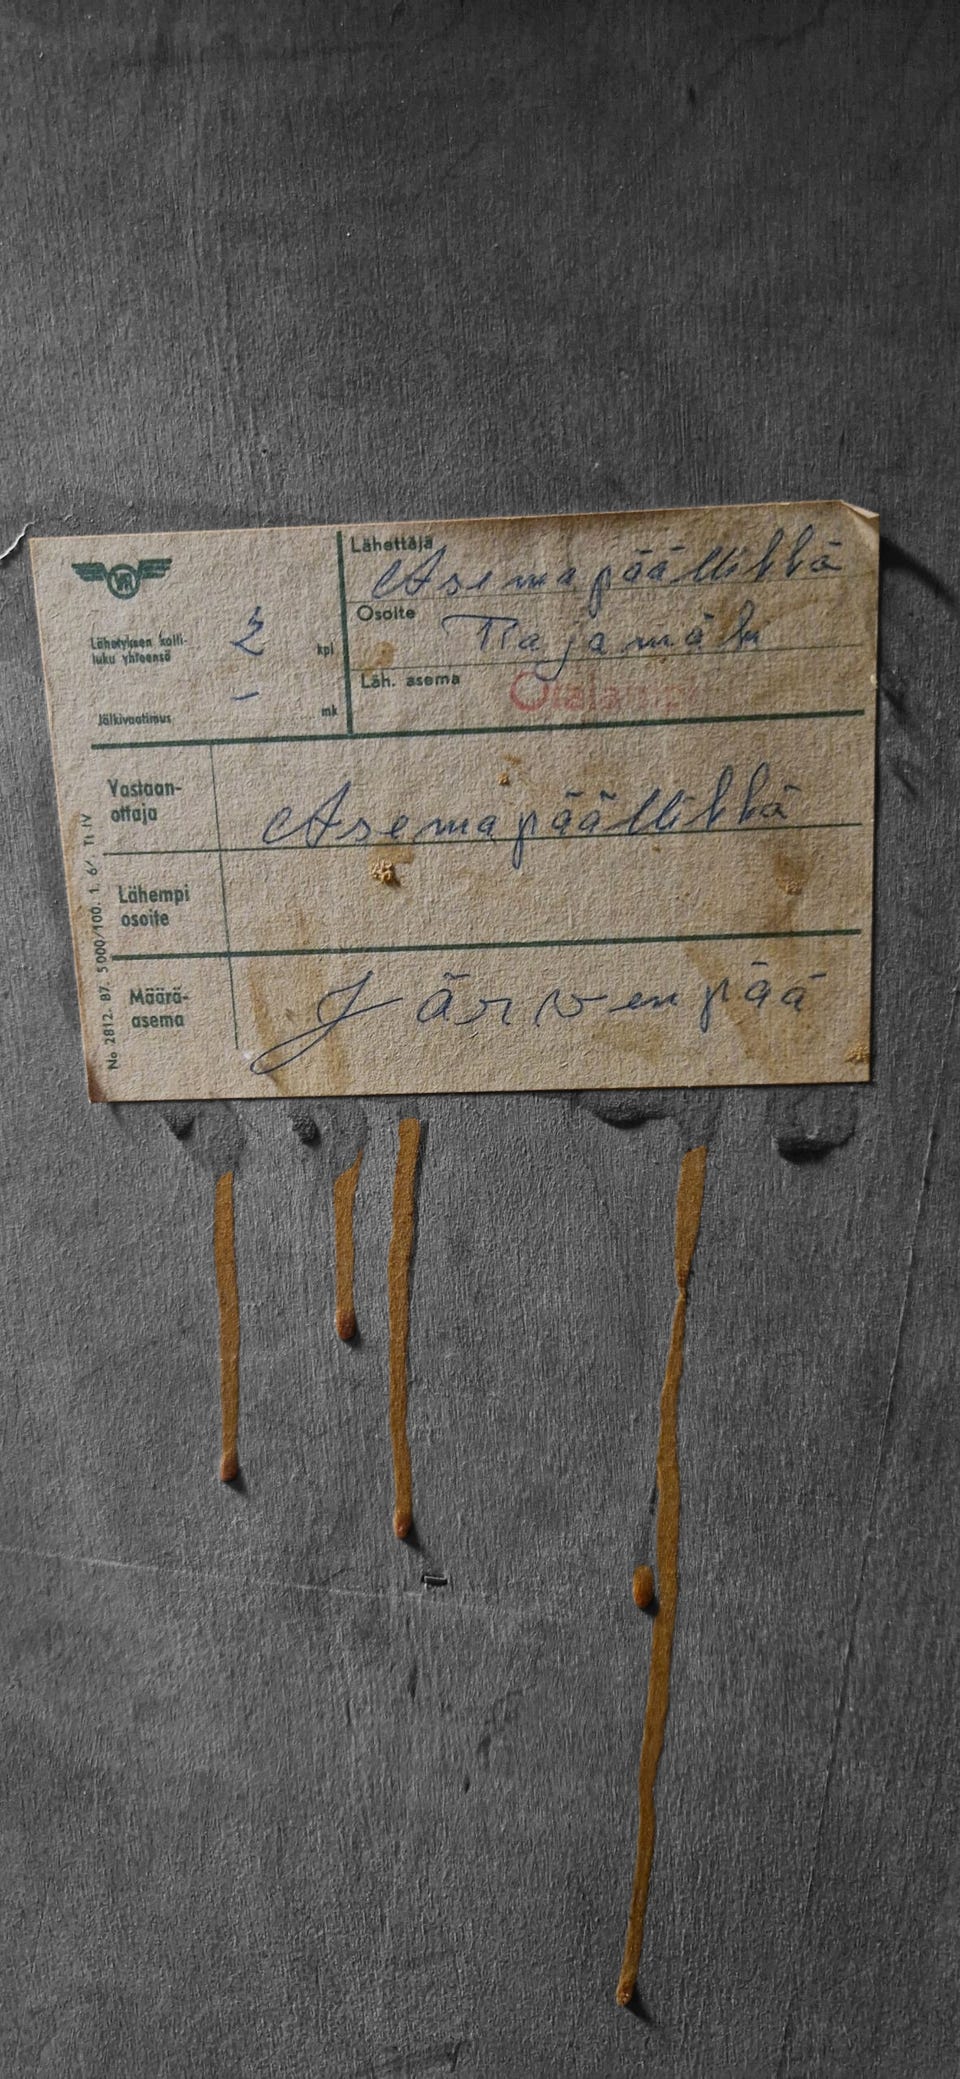 VR
Lähetyksen kolli-
luku yhteensä 2 kpl
Jälkivaatimus – mk
Lähettäjä Asemapäällikkö
Osoite Rajamäki
Läh. asema Otalampi
Vastaan-
ottaja Asemapäällikkö
Lähempi
osoite
Määrä-
asema Järvenpää
No 2812. B7. 5000/100. 1. 6